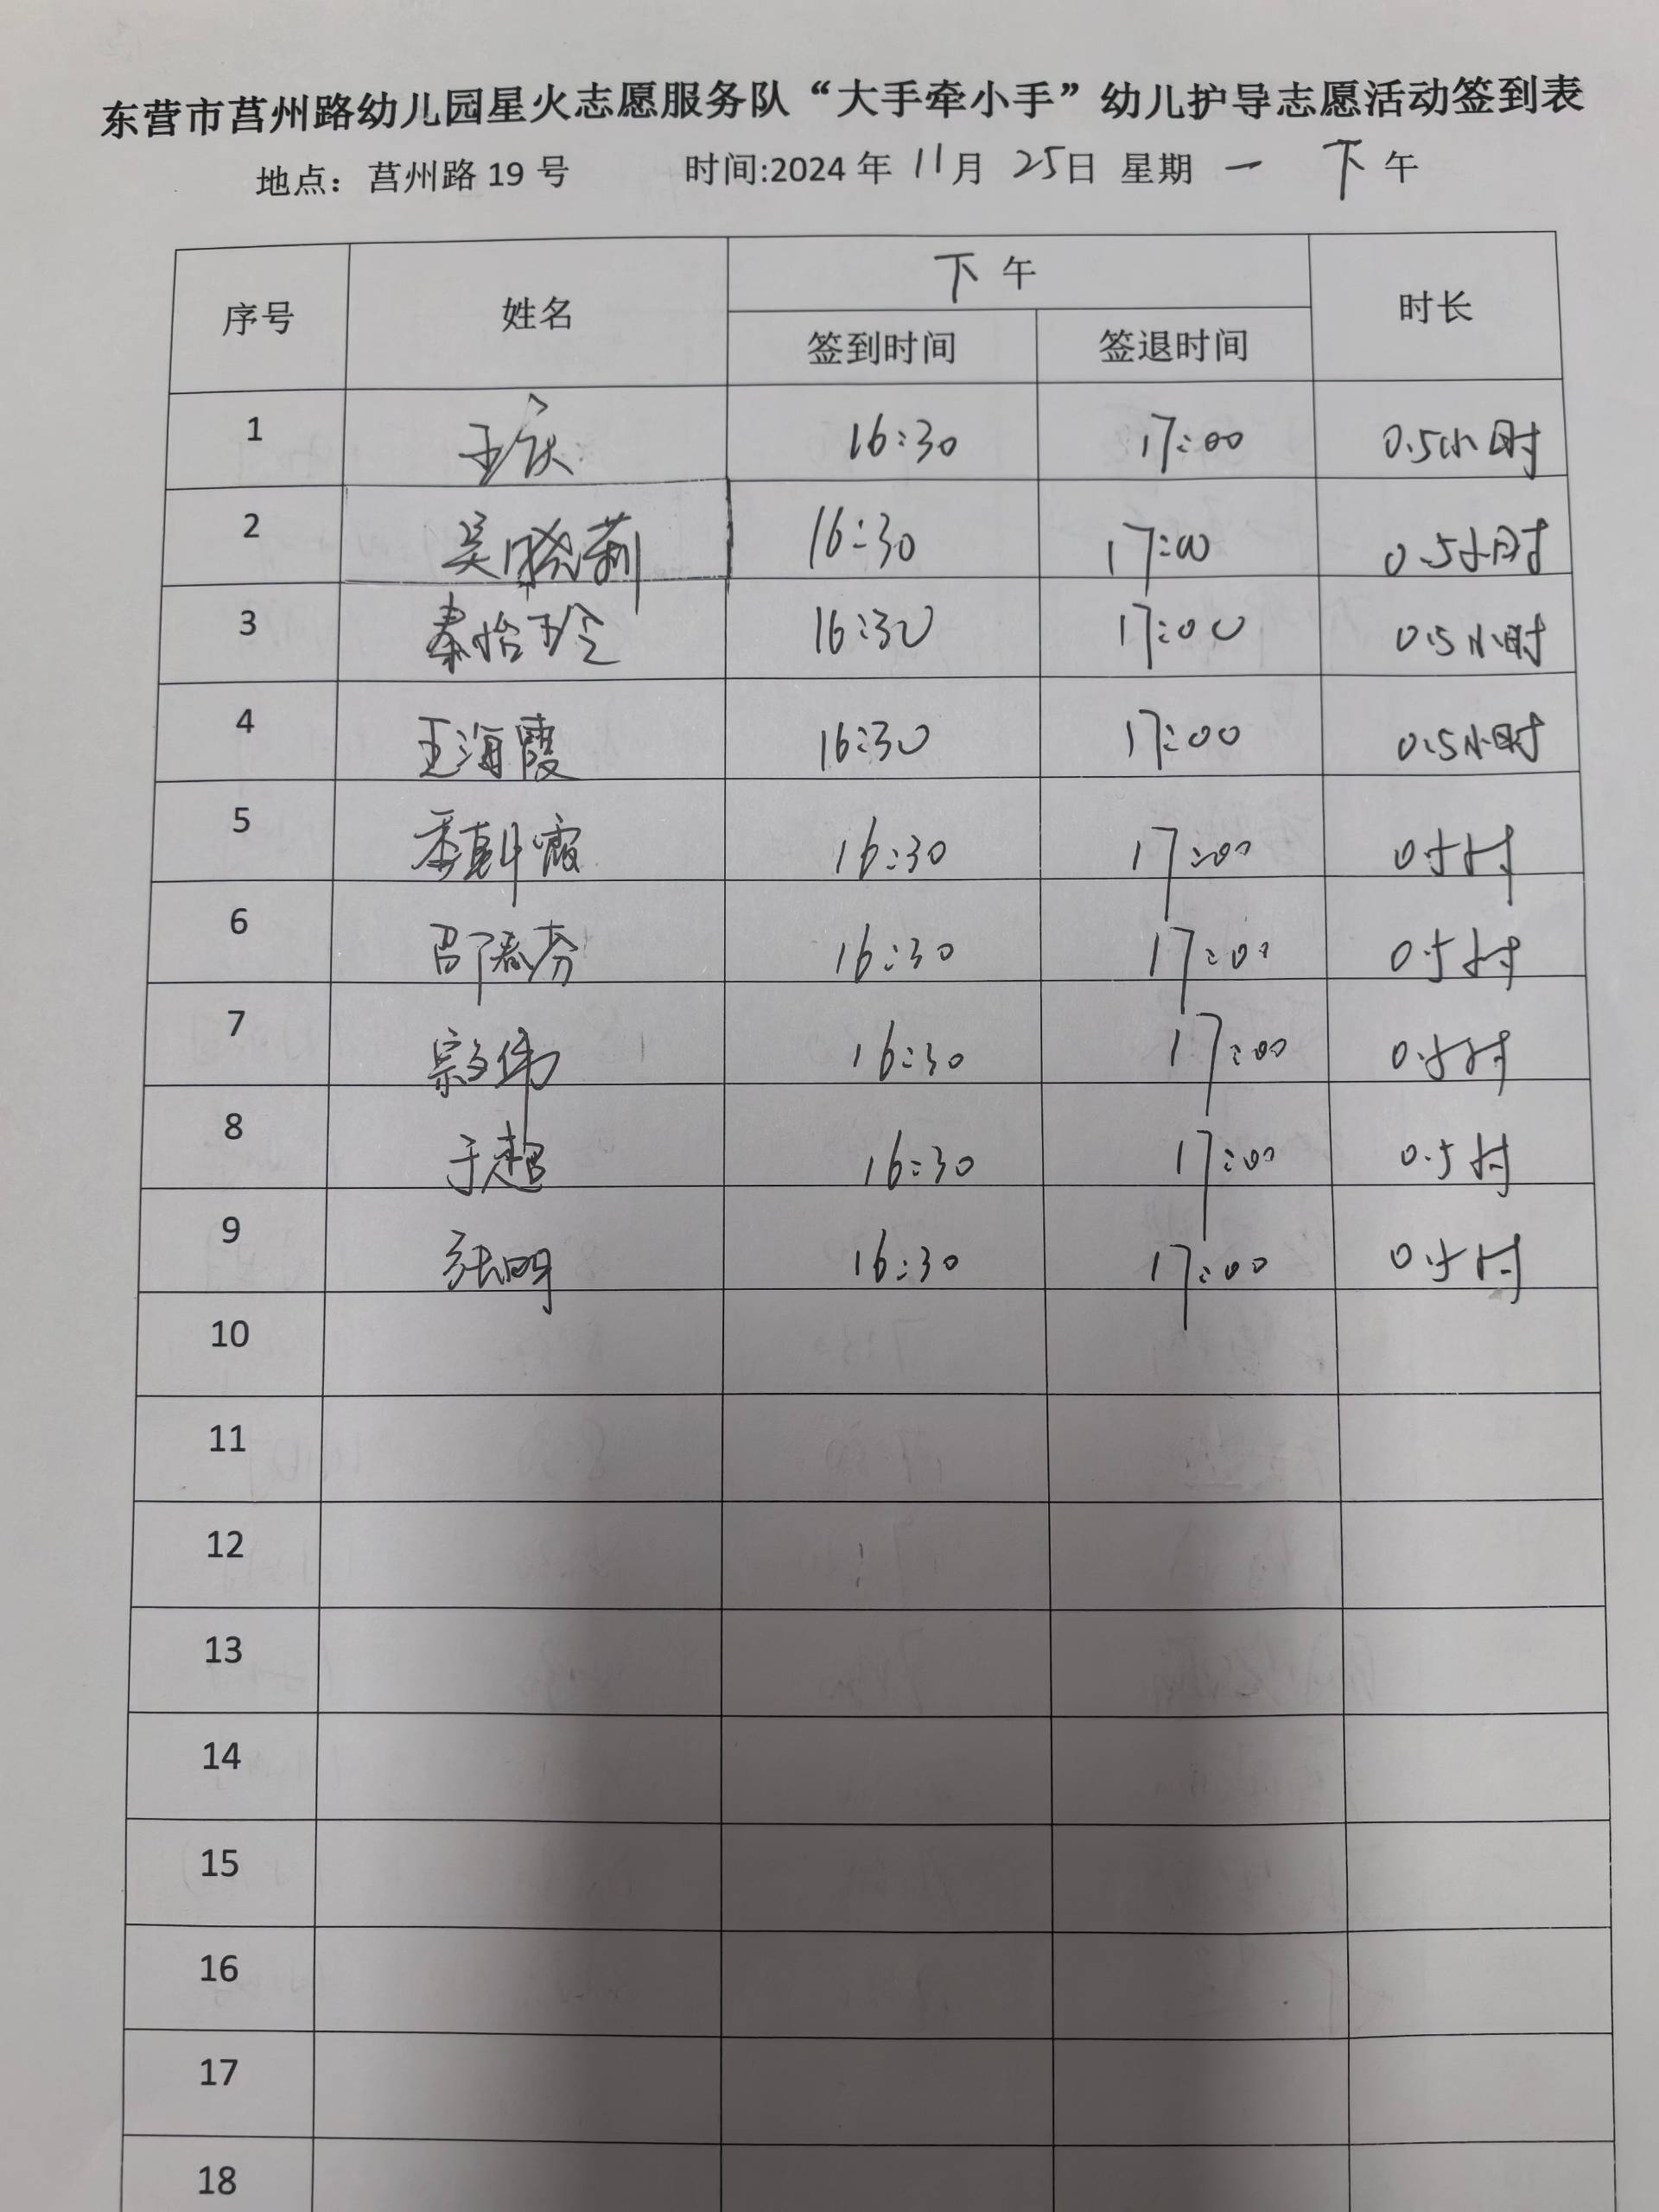 东营市莒州路幼儿园星火志愿服务队“大手牵小手”幼儿护导志愿活动签到表
地点：莒州路 19 号 时间:2024 年 11月 25日 星期 一 下 午
序号 姓名 下 午 时长
签到时间 签退时间
1 王庆 16:30 17:00 0.5小时
2 吴晓莉 16:30 17:00 0.5小时
3 秦怡玲 16:30 17:00 0.5小时
4 王海霞 16:30 17:00 0.5小时
5 16:30 17:00 0.5小时
6 邵春芬 16:30 17:00 0.5小时
7 宗文伟 16:30 17:00 0.5小时
8 于超 16:30 17:00 0.5小时
9 张明 16:30 17:00 0.5小时
10
11
12
13
14
15
16
17
18